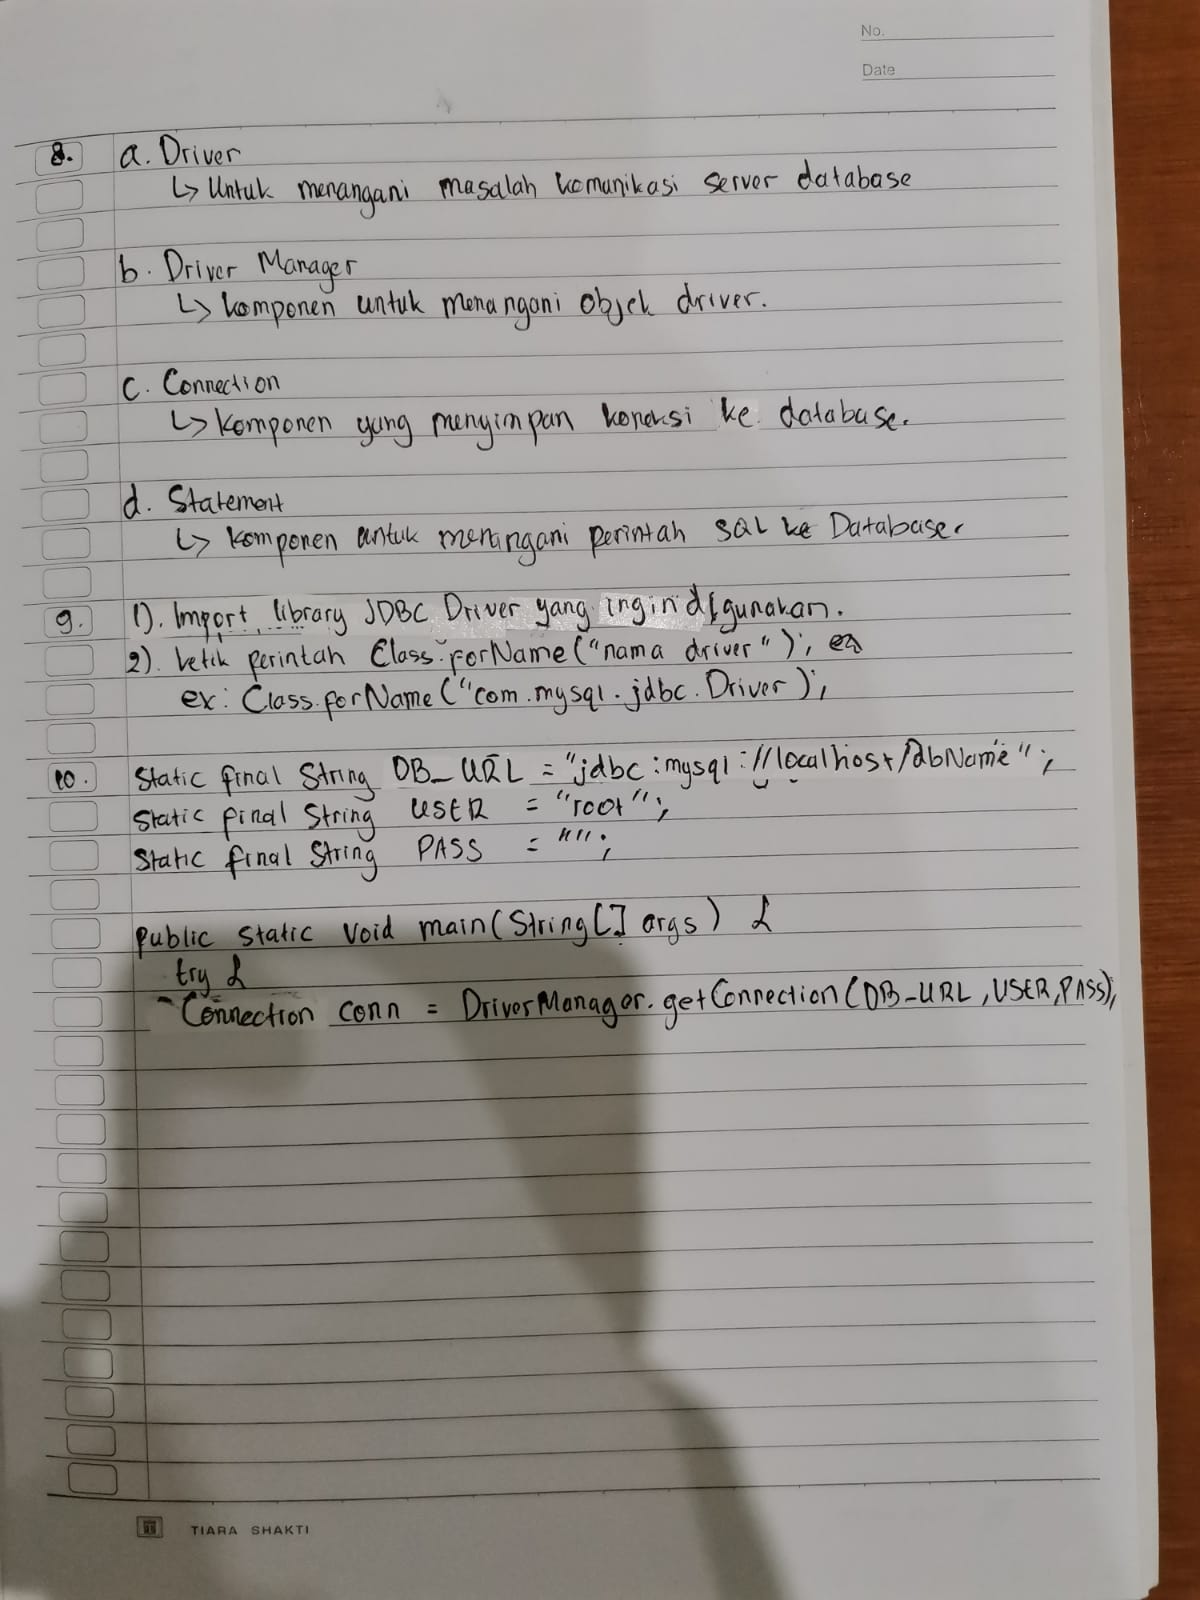 No.
Date
8. a. Driver
↳ Untuk menangani masalah komunikasi server database
b. Driver Manager
↳ komponen untuk menangani objek driver.
c. Connection
↳ komponen yang menyimpan koneksi ke database.
d. Statement
↳ komponen untuk menangani perintah SQL ke Database.
9. 1). Import library JDBC Driver yang ingin digunakan.
2). ketik perintah Class.forName("nama driver");
ex: Class.forName("com.mysql.jdbc.Driver);
10. Static final String DB_URL = "jdbc:mysql://localhost/dbName";
Static final String USER = "root";
Static final String PASS = "";
public static void main(String[] args) {
try {
Connection conn = DriverManager.getConnection(DB_URL, USER, PASS);
TIARA SHAKTI